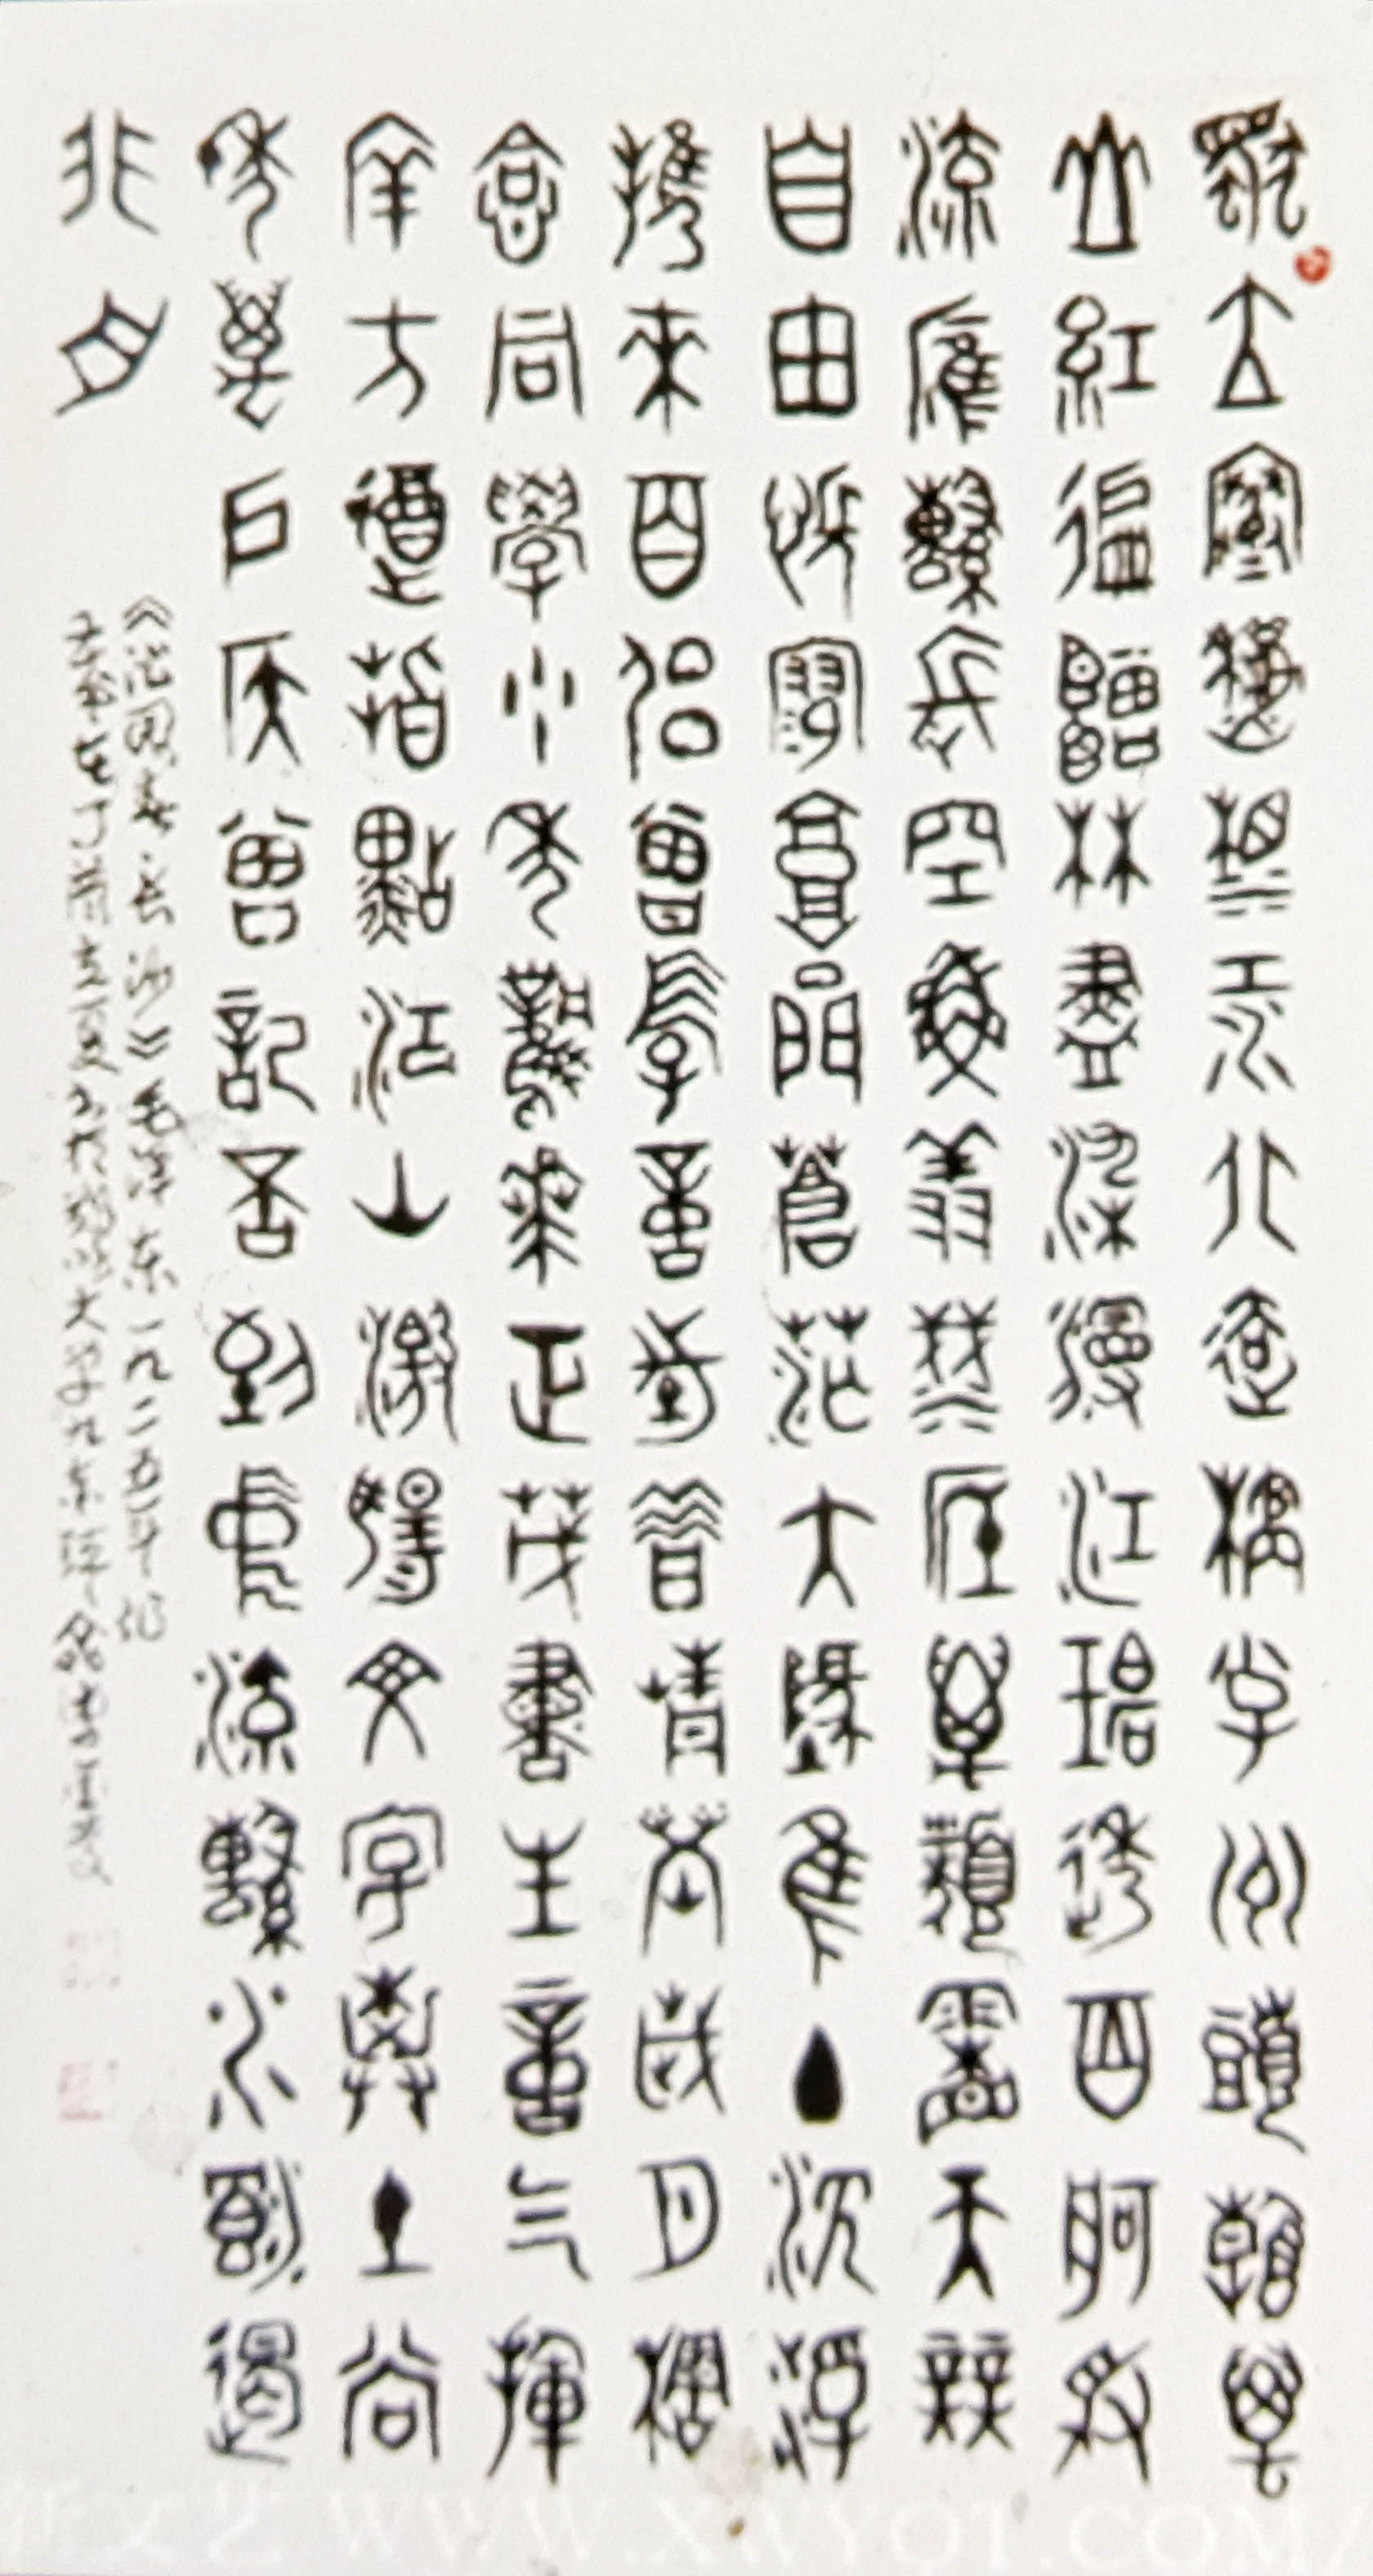 獨立寒秋湘江北去橘子洲頭看萬
山紅徧層林盡染漫江碧透百舸爭
流鷹擊長空魚翔淺底萬類霜天競
自由悵寥廓問蒼茫大地誰主沉浮
攜來百侶曾遊憶往昔崢嶸歲月稠
恰同學少年風華正茂書生意氣揮
斥方遒指點江山激揚文字糞土當
年萬戶侯曾記否到中流擊水浪遏
飛舟
《沁园春·长沙》毛泽东一九二五年作
WWW.XWYQT.COM/